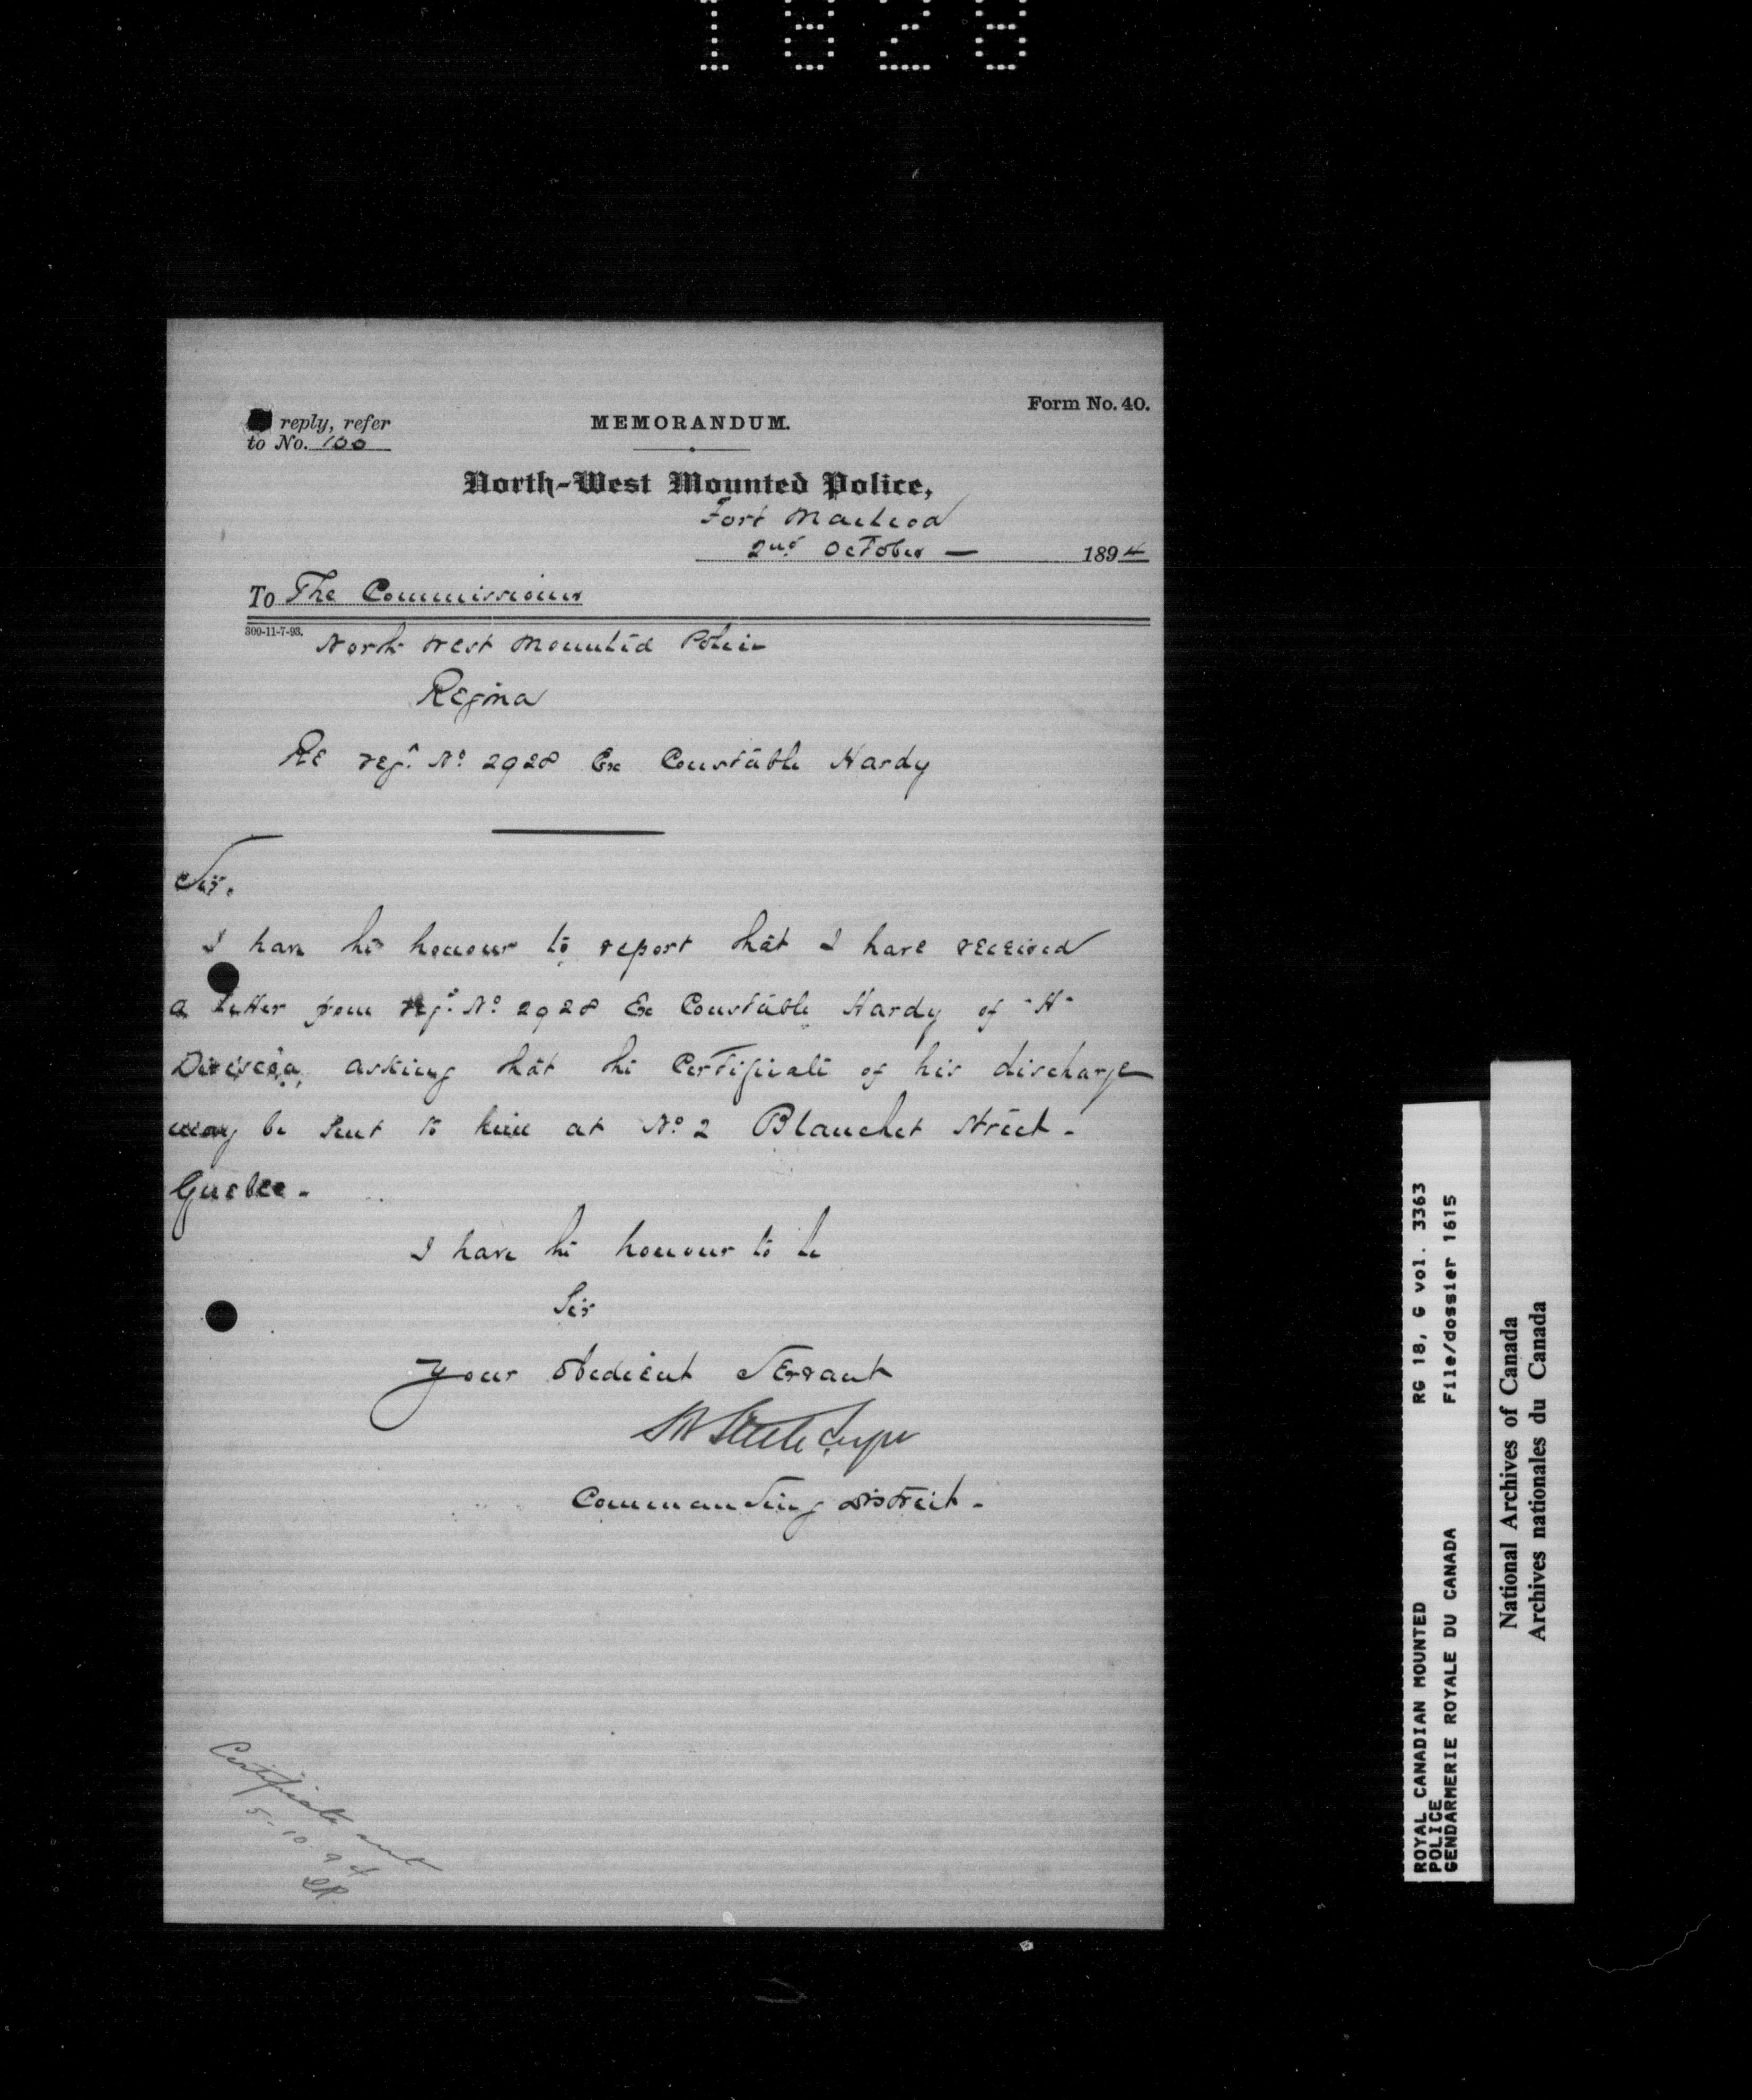 1828
Form No. 40.
reply, refer
to No. 100
MEMORANDUM.
North-West Mounted Police,
Fort Macleod
2nd October — 1894
To The Commissioner
300-11-7-93.
North West Mounted Police
Regina
Re regt. No 2928 Ex Constable Hardy
Sir.
I have the honour to report that I have received
a letter from regt. No 2928 Ex Constable Hardy of "H"
Division, asking that the Certificate of his discharge
may be sent to him at No 2 Blanchet Street -
Quebec -
I have the honour to be
Sir
Your obedient Servant
SB Steele Supt
Commanding District -
Certificate sent
5-10-94
ROYAL CANADIAN MOUNTED RG 18, G vol. 3363
POLICE
GENDARMERIE ROYALE DU CANADA File/dossier 1615
National Archives of Canada
Archives nationales du Canada